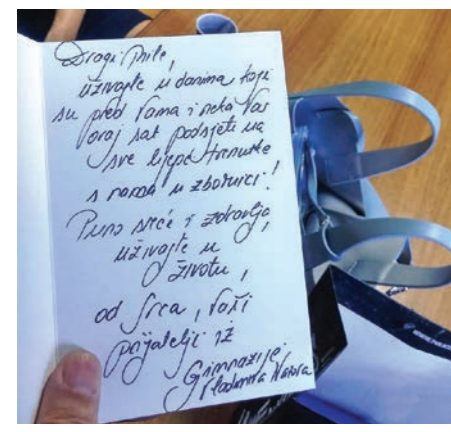 Dragi Mile,
uživajte u danima koji
su pred Vama i neka Vas
ovaj sat podsjeti na
sve lijepe trenutke
s nama u zbornici!
Puno sreće i zdravlja,
uživajte u
životu,
od srca, Vaši
prijatelji iz
Gimnazije
Vladimira Nazora